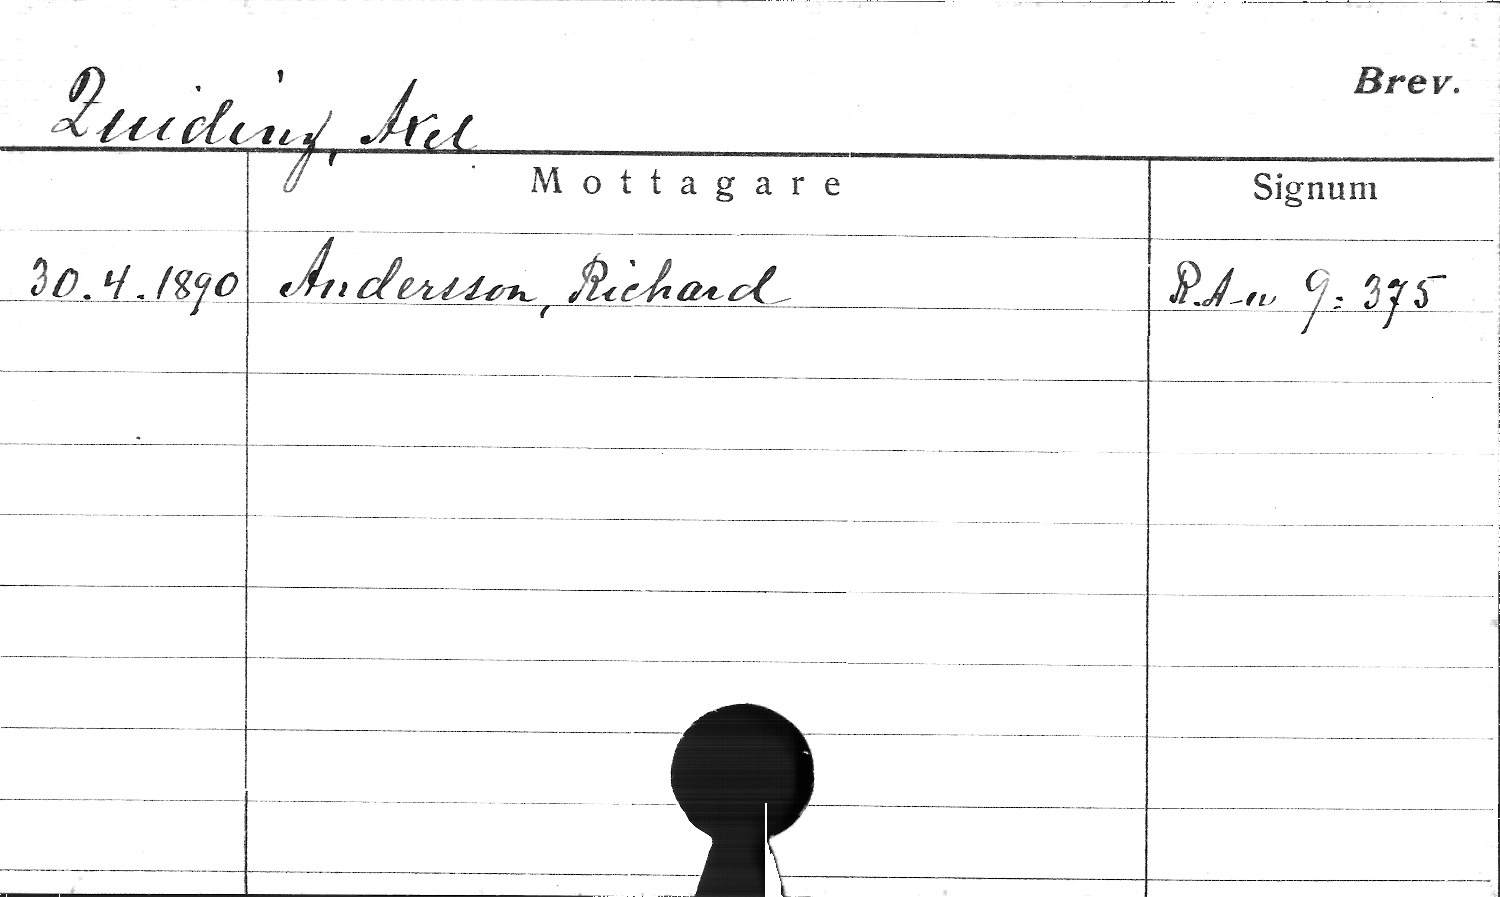 Brev.
Quiding, Axel
Mottagare Signum
30.4.1890 Andersson, Richard R.A-n 9:375